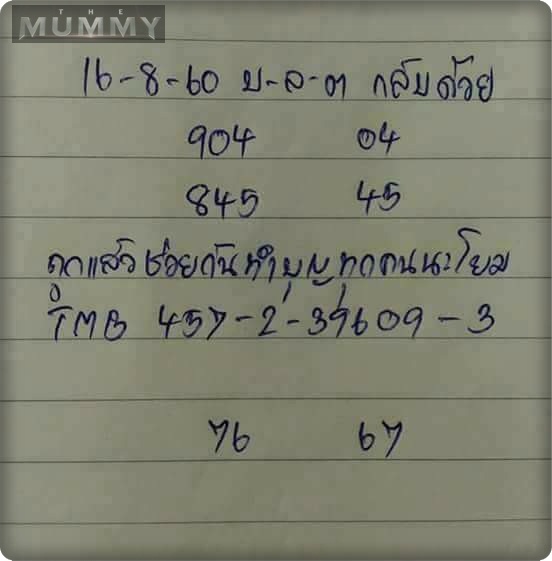 THE
MUMMY
16-8-60 บ-ล-ต กลับด้วย
904 04
845 45
ถูกแล้วช่วยกันทำบุญทุกคนนะโยม
TMB 457-2-39609-3
76 67